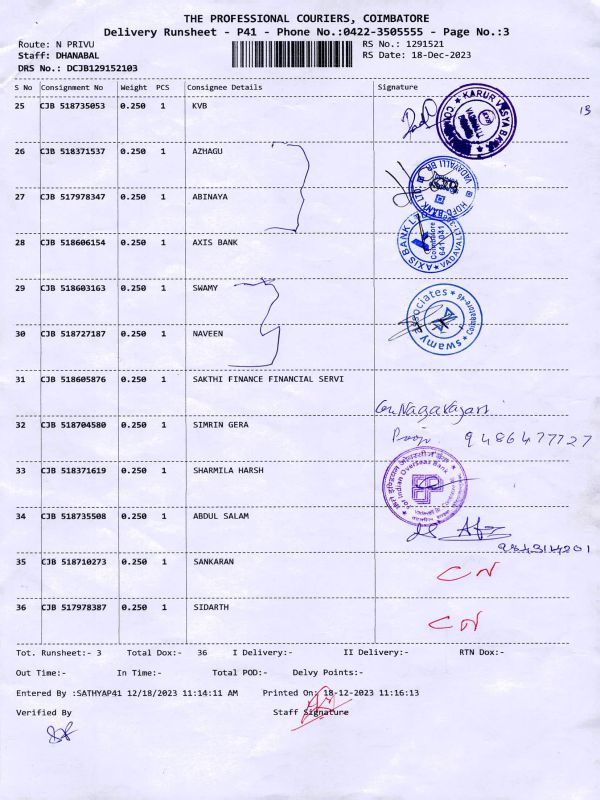 THE PROFESSIONAL COURIERS, COIMBATORE
Delivery Runsheet - P41 - Phone No.:0422-3505555 - Page No.:3
Route: N PRIVU RS No.: 1291521
Staff: DHANABAL RS Date: 18-Dec-2023
DRS No.: DCJB129152103
S No Consignment No Weight PCS Consignee Details Signature
25 CJB 518735053 0.250 1 KVB
26 CJB 518371537 0.250 1 AZHAGU
27 CJB 517978347 0.250 1 ABINAYA
28 CJB 518606154 0.250 1 AXIS BANK
29 CJB 518603163 0.250 1 SWAMY
swamy associates * Coimbatore-46 *
30 CJB 518727187 0.250 1 NAVEEN
31 CJB 518605876 0.250 1 SAKTHI FINANCE FINANCIAL SERVI
32 CJB 518704580 0.250 1 SIMRIN GERA
9486477727
33 CJB 518371619 0.250 1 SHARMILA HARSH
Indian Overseas Bank
34 CJB 518735508 0.250 1 ABDUL SALAM
35 CJB 518710273 0.250 1 SANKARAN CN
36 CJB 517978387 0.250 1 SIDARTH CN
Tot. Runsheet:- 3 Total Dox:- 36 I Delivery:- II Delivery:- RTN Dox:-
Out Time:- In Time:- Total POD:- Delvy Points:-
Entered By :SATHYAP41 12/18/2023 11:14:11 AM Printed On: 18-12-2023 11:16:13
Verified By Staff Signature